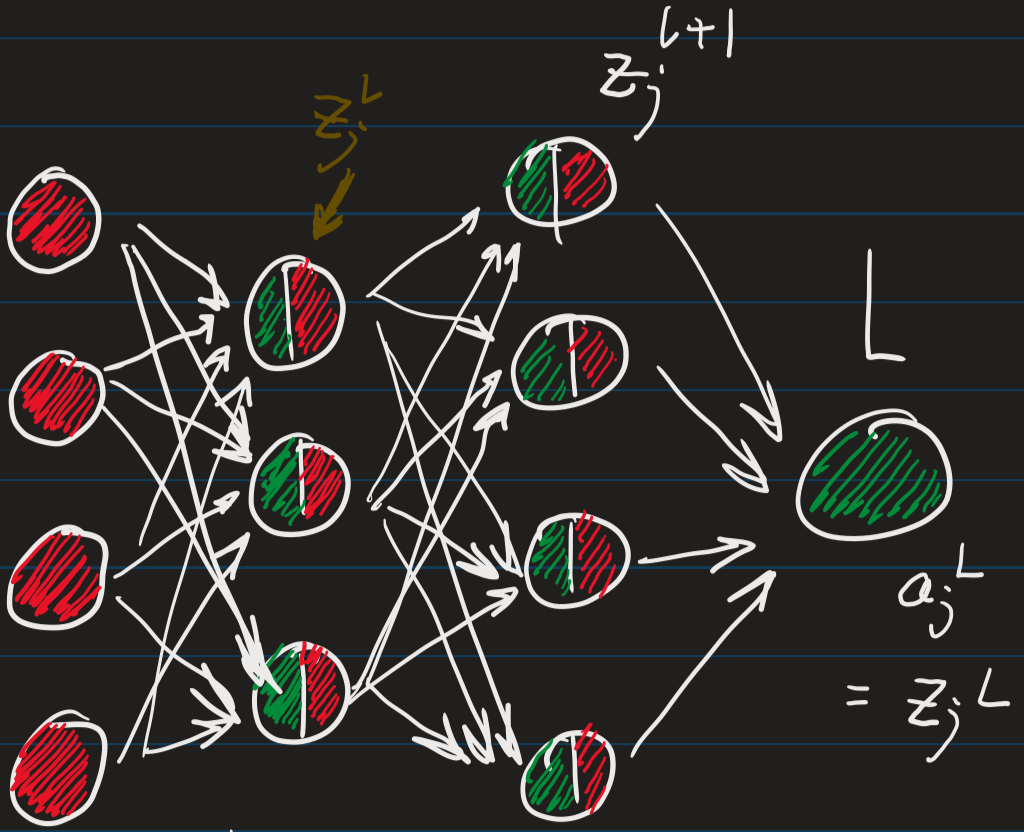 z_j^{l+1}
z_j^L
L
a_j^L
= z_j^L